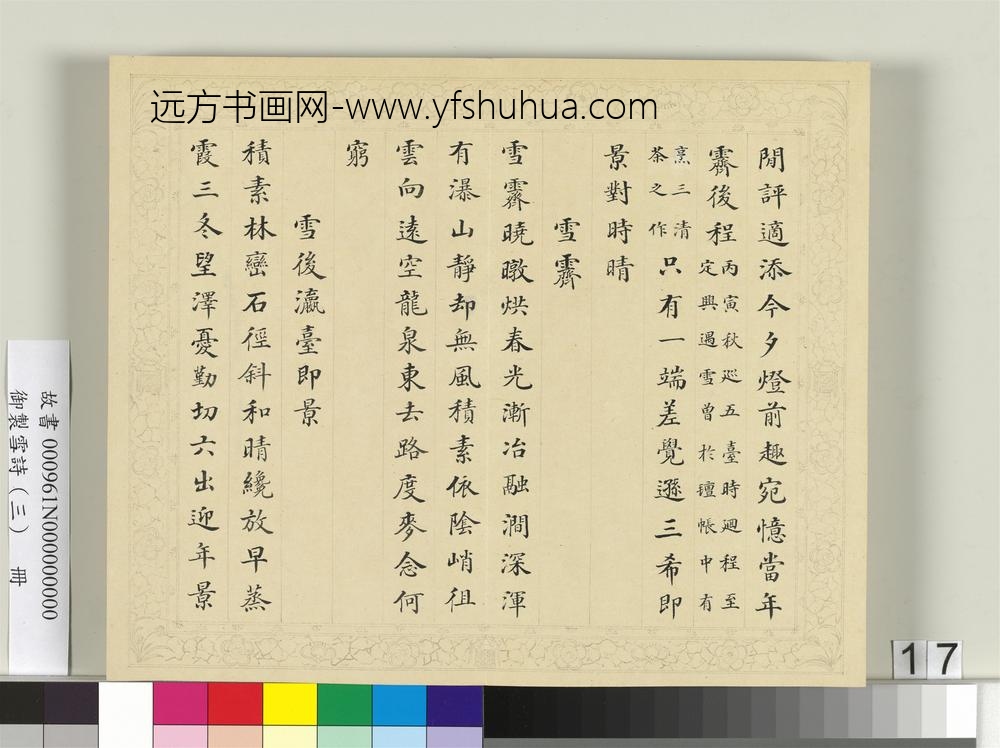 远方书画网-www.yfshuhua.com
閒評適添今夕燈前趣宛憶當年
霽後程丙寅秋廵五臺時廻程至定興遇雪曾於氊帳中有
烹三清茶之作只有一端差覺遜三希即
景對時晴
雪霽
雪霽曉暾烘春光漸冶融澗深渾
有瀑山靜却無風積素依陰峭徂
雲向遠空龍泉東去路度麥念何
窮
雪後瀛臺即景
積素林巒石徑斜和晴纔放早蒸
霞三冬望澤憂勤切六出迎年景
故書 000961N000000000
御製雪詩(三) 冊
17